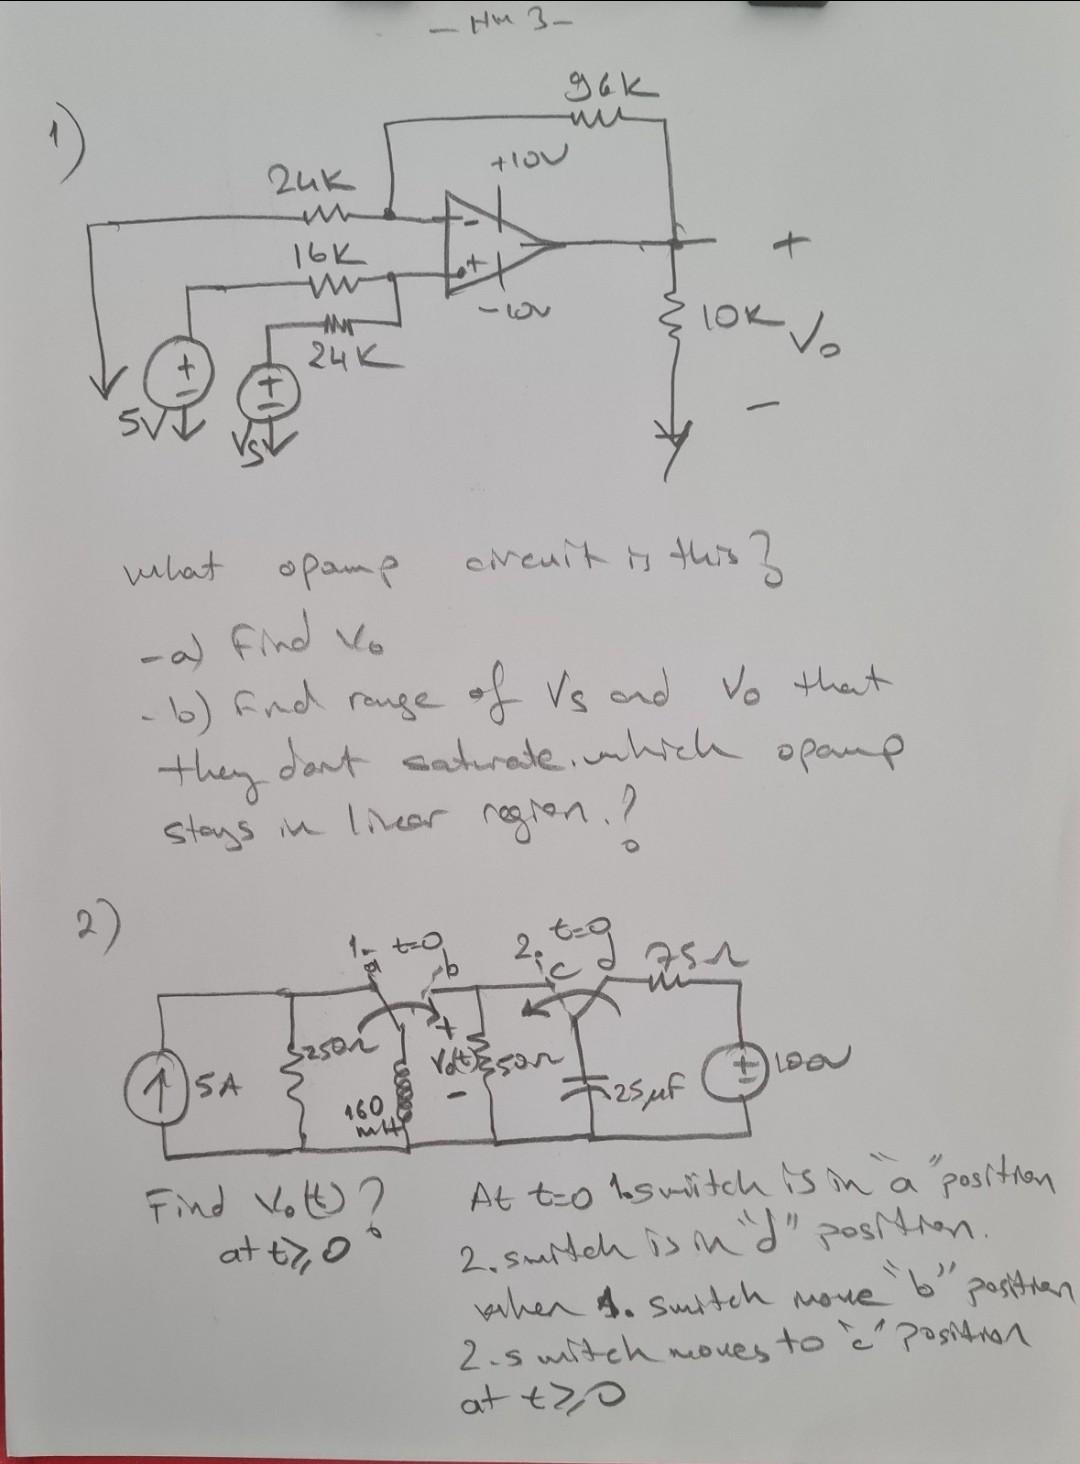 - HW 3 -
1)
96K
+10V
24K
-
16K
+
-10V
+
10K
Vo
24K
+
-
5V
+
-
Vs
-
what opamp circuit is this?
-a) Find Vo
-b) Find range of Vs and Vo that
they dont saturate. which opamp
stays in linear region.?
2)
1. t=0
a
b
2. t=0
c
d
75Ω
5A
250Ω
160
mH
+
Vo(t)
-
50Ω
25μF
+
-
100V
Find Vo(t)?
at t≥0
At t=0 1.switch is in "a" position
2. switch is in "d" position.
when 1. switch move "b" position
2. switch moves to "c" position
at t≥0